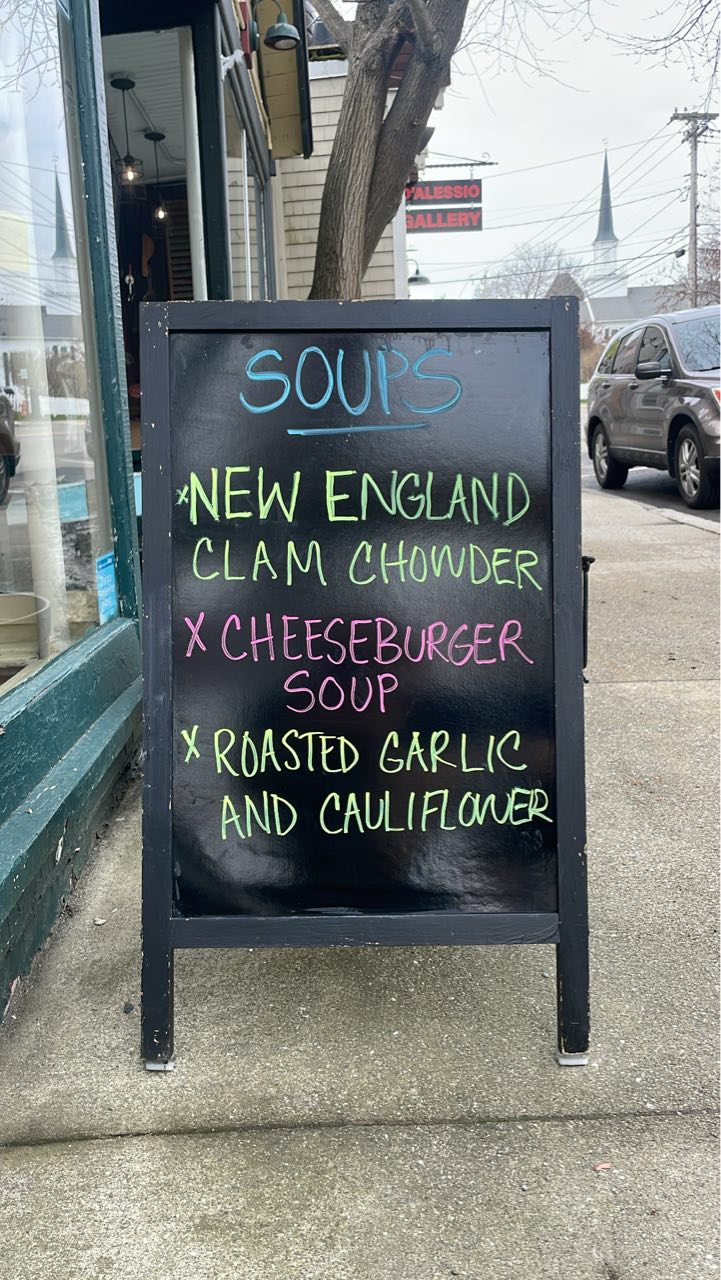 D'ALESSIO
GALLERY
SOUPS
xNEW ENGLAND
CLAM CHOWDER
X CHEESEBURGER
SOUP
X ROASTED GARLIC
AND CAULIFLOWER